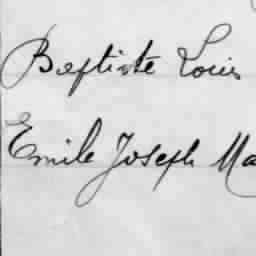 Baptiste Louis
Emile Joseph Ma